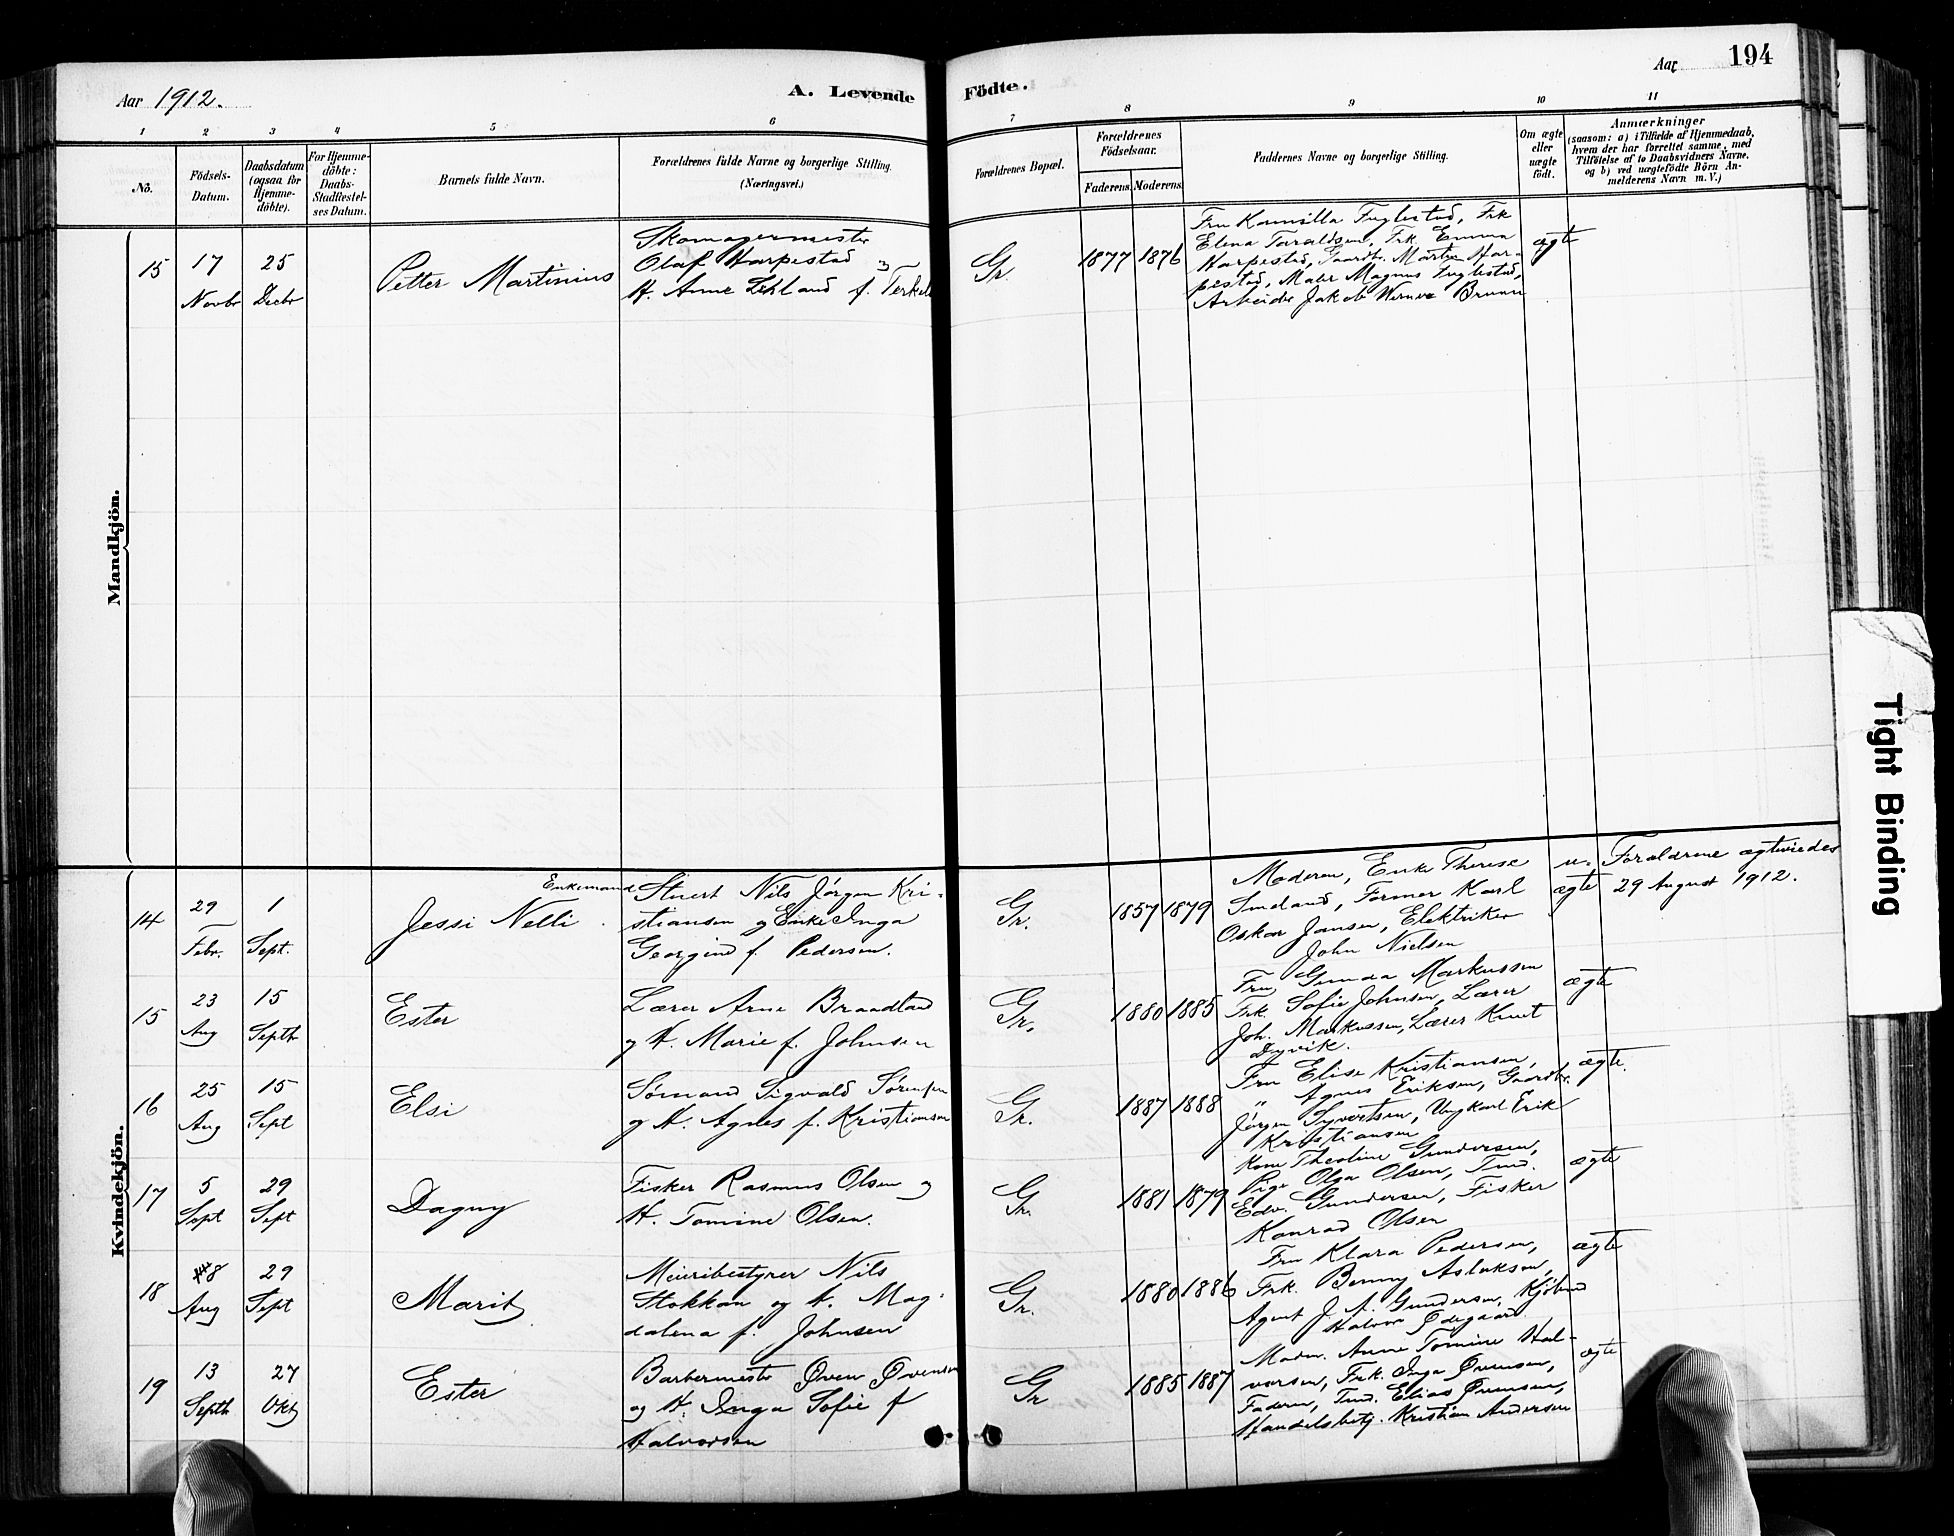 Aar 1912.
A. Levende
Födte.
Aar
194
1 2 3 4 5 6 7 8 9 10 11
No.
Födsels-
Datum.
Daabsdatum
(ogsaa for
Hjemme-
döbte).
For Hjemme-
döbte:
Daabs-
Stadfæstel-
ses Datum.
Barnets fulde Navn.
Forældrenes fulde Navne og borgerlige Stilling.
(Næringsvei.)
Forældrenes Bopæl.
Forældrenes
Födselsaar.
Faderens.
Moderens.
Faddernes Navne og borgerlige Stilling.
Om ægte
eller
uægte
födt.
Anmærkninger
(saasom: a) i Tilfælde af Hjemmedaab,
hvem der har forrettet samme, med
Tilföielse af to Daabsvidners Navne,
og b) ved uægtefödte Börn An-
melderens Navn m. V.)
Mandkjön.
15
17
Novbr
25
Decbr
Petter Martinius
Skomagermester
Olaf Harpestad
H. Anne f.
Gr.
1877 1876
Fru Kamilla Fuglestad, Frk
Elena Taraldsen, Frk. Emma
Harpestad, Gaardbr. Martin Har-
pestad, Maler Magnus Fuglestad,
Arbeider Jakob Werner Bruun
ægte
Kvindekjön.
14
29
Febr.
1
Sept.
Jessi Nelli
Enkemand
Stuert Nils Jörgen Kri-
stiansen og Enke Inga
Georgine f. Pedersen.
Gr.
1857 1879
Moderen, Enke Therese
Smeland, Former Karl
Oskar Jansen, Elektriker
John Nielsen
u-
ægte
Forældrene ægteviedes
29 August 1912.
15
23
Aug
15
Septb
Ester
Lærer Arne
og H. Marie f. Johnsen
Gr.
1880 1885
Fru Gunda Markussen
Frk. Sofie Johnsen, Lærer
Joh. Markussen, Lærer Knut
Dyvik.
ægte
16
25
Aug
15
Sept
Elsi
Sömand Sigvald Sörensen
og H. Agnes f. Kristiansen
Gr.
1887 1888
Fru Elise Kristiansen,
" Agnes Eriksen, Gaardbr.
Jörgen Syvertsen, Ungkarl Erik
Kristiansen
ægte.
17
5
Sept
29
Sept
Dagny
Fisker Rasmus Olsen og
H. Tomine Olsen.
Gr.
1881 1879
Kone Theoline Gundersen,
Pige Olga Olsen, Tmd.
Edv. Gundersen, Fisker
Konrad Olsen
ægte
18
8
Aug
29
Sept
Marit
Meieribestyrer Nils
Stokkan og H. Mag-
dalena f. Johnsen
Gr.
1880 1886
Fru Klara Pedersen,
Frk. Benny Aslaksen,
Agent J. A. Gundersen, Kjöbmd
Halvor Ödegaard
ægte
19
13
Septb
27
Okt
Ester
Barbermester Öven Övensen
og H. Inga Sofie f
Halvorsen
Gr
1885 1887
Madm. Anne Tomine Hal-
vorsen, Frk. Inga Övensen,
Faderen, Tmd. Elias Övensen,
Handelsbetj. Kristian Andersen
ægte
Tight Binding